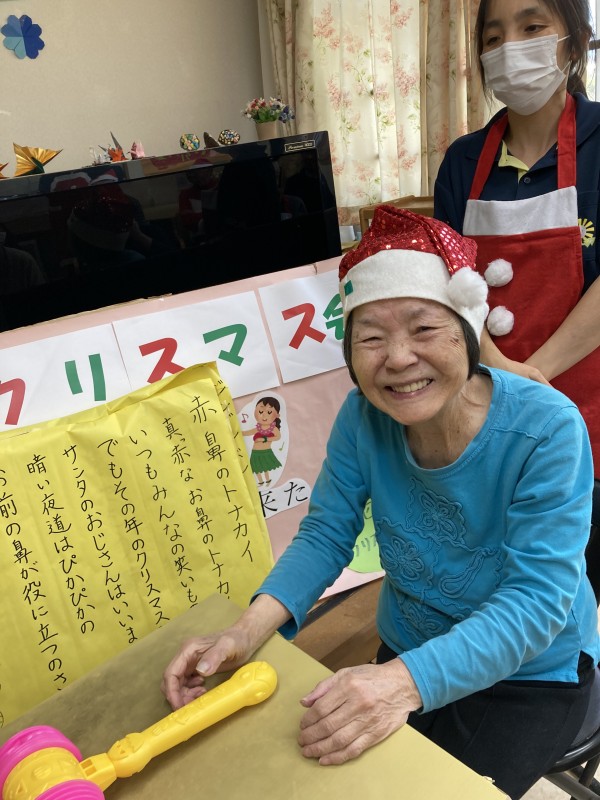 クリスマス会
赤鼻のトナカイ
真っ赤なお鼻のトナカ
いつもみんなの笑いも
でもその年のクリスマス
サンタのおじさんはいいま
暗い夜道はぴかぴかの
お前の鼻が役に立つのさ
ジングル
来た
クリ